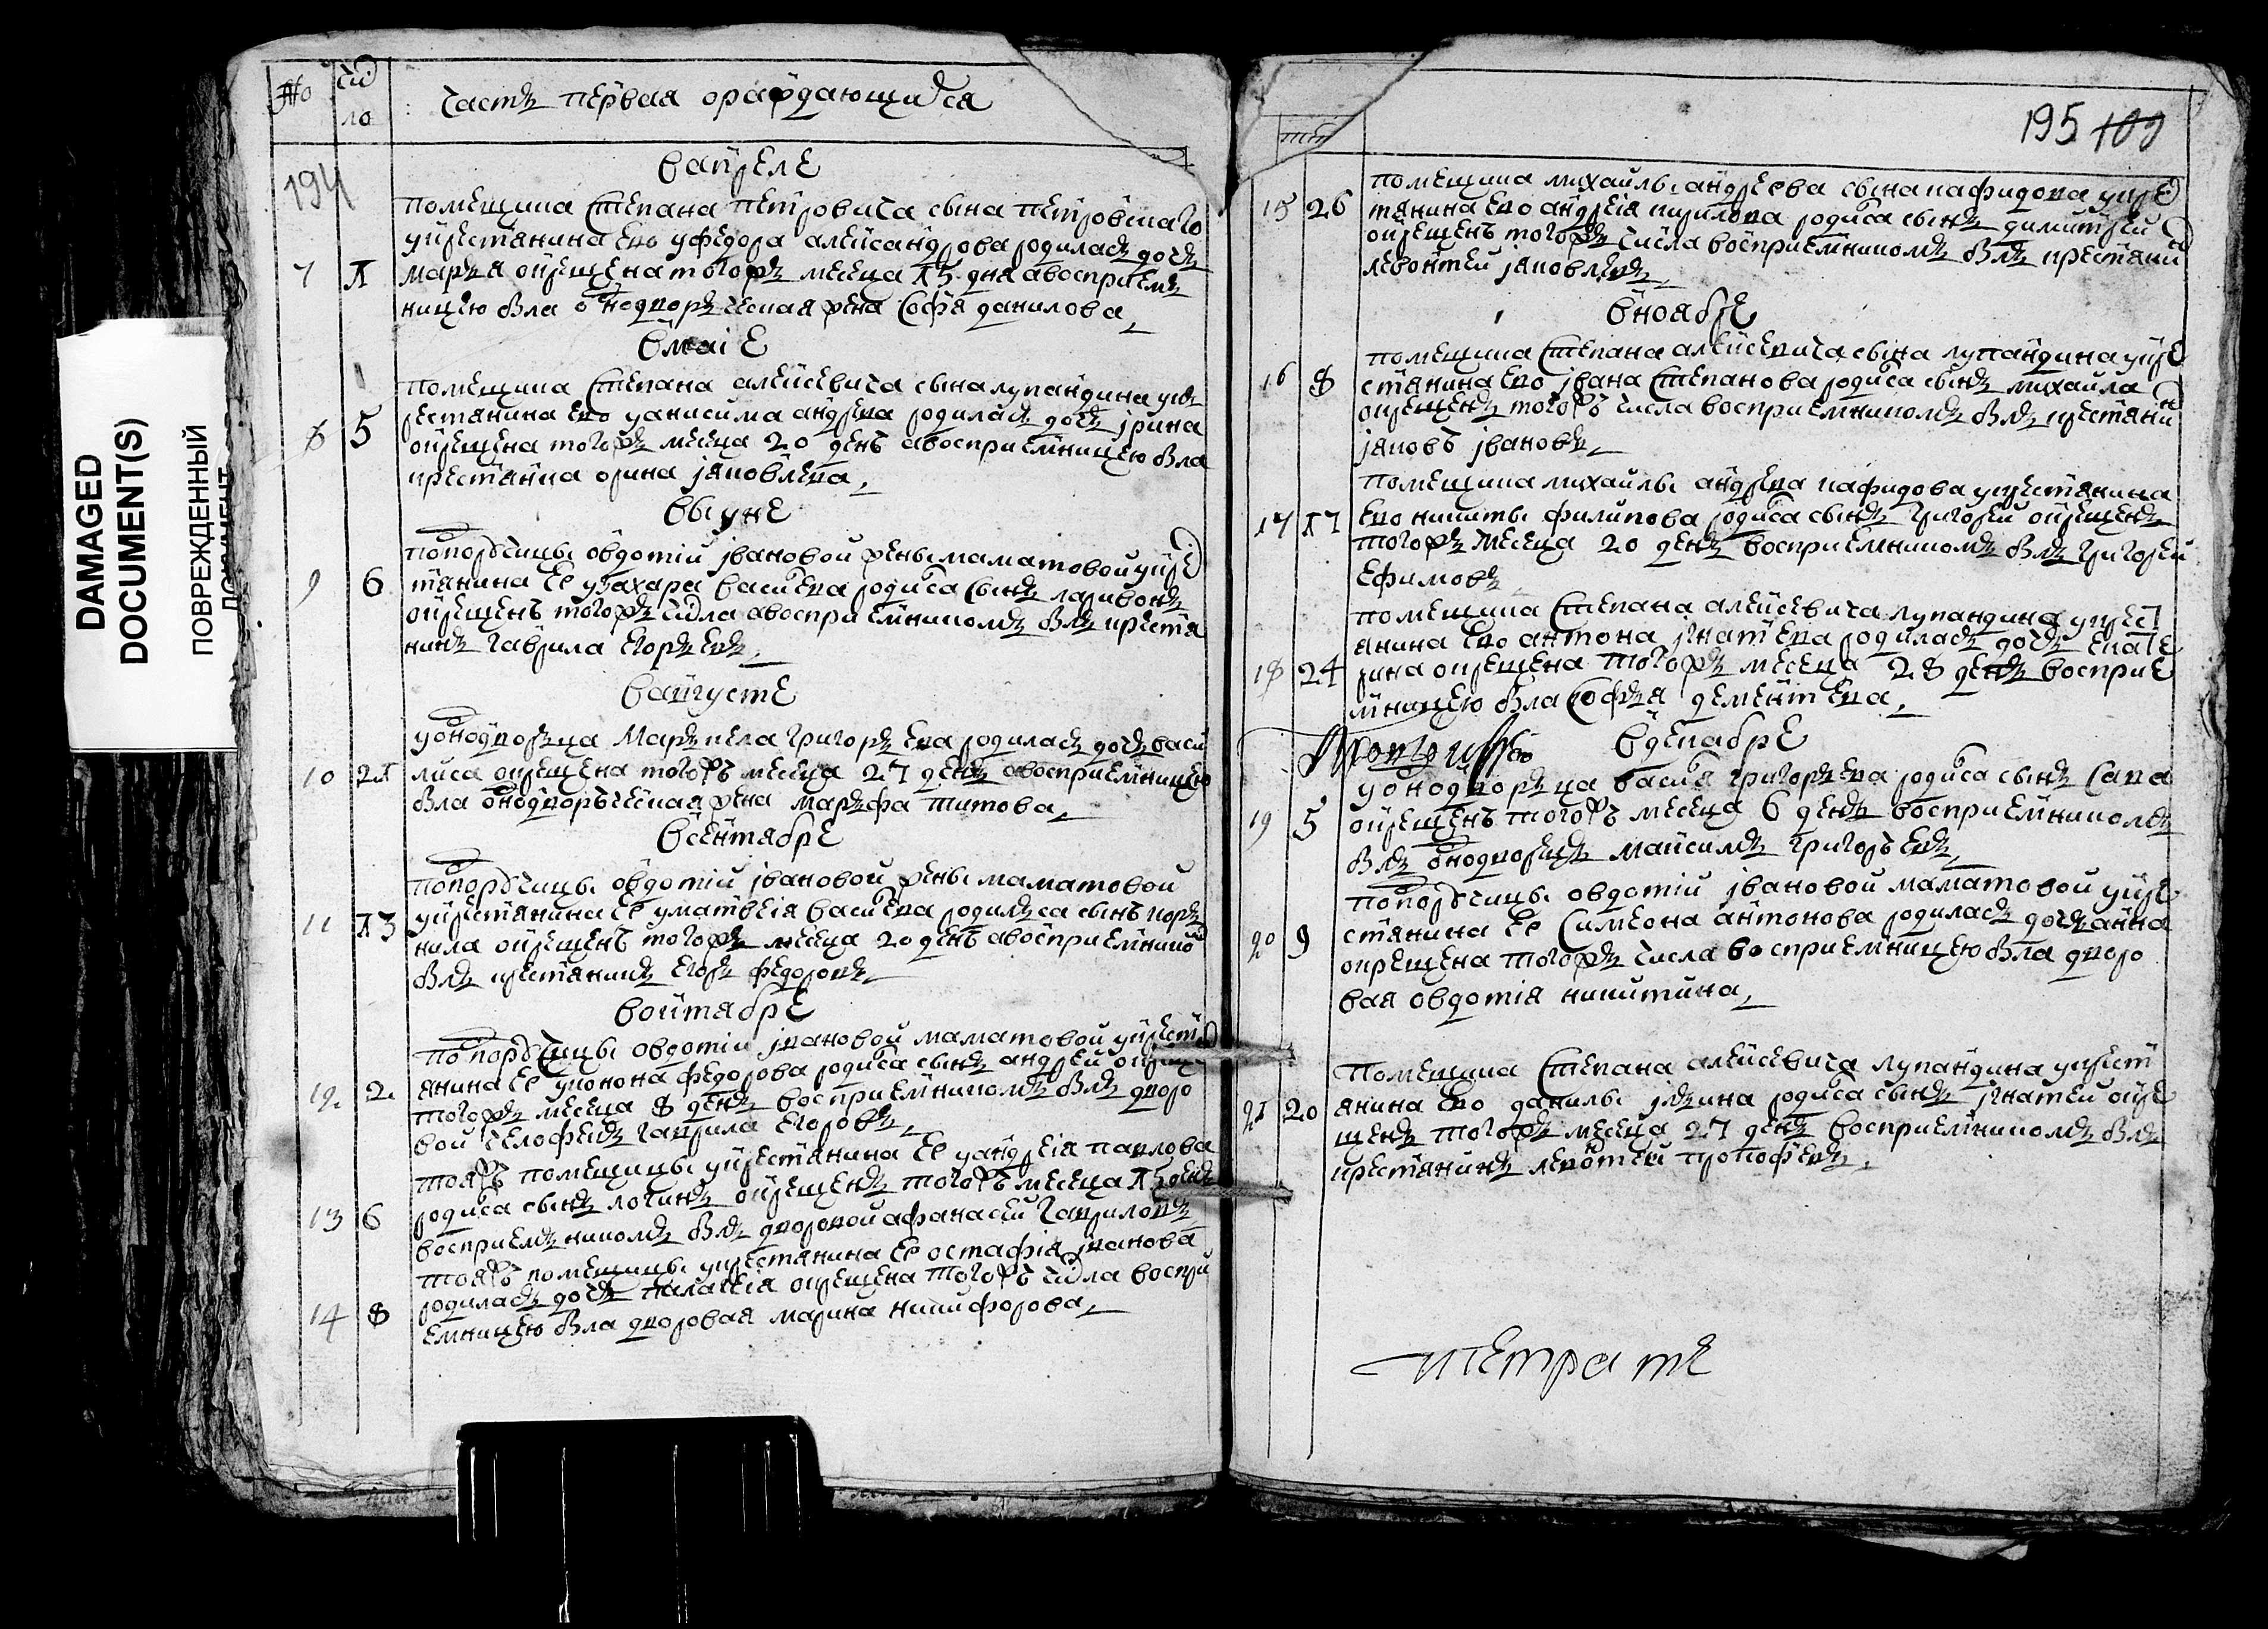 DAMAGED
DOCUMENT(S)
ПОВРЕЖДЕННЫЙ
ДОКУМЕНТ
№ число часть первая о раждающихся
194
в апреле
помещика Степана Петровича сына Петровскаго
у крестьянина ево у Федора Александрова родилась дочь
7 1 Марья крещена тогожъ месеца 15 дня а восприем
ницею была однодворческая жена Софя Данилова
в маiе
помещика Степана Алексевича сына Лупандина у кр
8 5 рестянина ево у Анисима Андрева родилась дочь Ирина
крещена тогожъ месеца 20 день а восприемницею была
крестянка Орина Яковлева
в ыуне
попорутчицы Овдотiи Ивановой жены Маматовой у кре
9 6 тянина ее у Захара Василева родился сынъ Ларивонъ
окрещенъ тогожъ числа а восприемникомъ былъ крестя
нинъ Гаврила Егорьевъ
в августе
у однодворца Маркела Григорьева родилась дочь Васи
10 21 лиса окрещена тогожъ месеца 27 день а восприемницею
была однодворческая жена Марфа Титова
в сентябре
попорутчицы Овдотiи Ивановой жены Маматовой
11 13 у крестянина ее у Матвеiя Василева родилься сынъ Корь
нила окрещенъ тогожъ месеца 20 день а восприемнико
былъ крестянинъ Егоръ Федоровъ
в октябре
попорутчицы Овдотiи Ивановой Маматовой у крест
12 2 янина ее у Конона Федорова родился сынъ Андрей окрещ
тогожъ месеца 8 день восприемникомъ былъ дворо
вой человекъ Гаврила Егоровъ
тояжъ помещицы у крестянина ее у Андреiя Павлова
13 6 родился сынъ Логинъ окрещенъ тогожъ месеца 15 день
восприемникомъ былъ дворовой Афанасей Гавриловъ
тояжъ помещицы у крестянина ее Остафiя Иванова
14 8 родилась дочь Палагея окрещена тогожъ числа воспри
емницею была дворовая Марина Никифорова
195 109
помещика Михайлы Андреева сына Кафидова у кре
15 26 тянина ево Андрея Кирилова родился сынъ Димитрей
окрещенъ тогожъ числа восприемникомъ былъ крестяни
Левонтей Яковлевъ
в ноябре
помещика Степана Алексевича сына Лупандина у кре
16 8 стянина ево Ивана Степанова родился сынъ Михаила
окрещенъ тогожъ числа восприемникомъ былъ крестяни
Яковъ Ивановъ
помещика Михайлы Андрева Кафидова у крестянина
17 17 ево Никиты Филипова родился сынъ Григорей окрещенъ
тогожъ месеца 20 день восприемникомъ былъ Григорей
Ефимовъ
помещика Степана Алексевича Лупандина у крест
янина ево Антона Игнатева родилась дочь Екате
18 24 рина окрещена тогожъ месеца 28 день восприе
мницею была Софья Дементева
в декабре
у однодворца Василя Григорьева родился сынъ Сава
19 5 окрещенъ тогожъ месеца 6 день восприемникомъ
былъ однодворецъ Максимъ Григорьевъ
попорутчицы Овдотiи Ивановой Маматовой у кре
20 9 стянина ее Симеона Антонова родилась дочь Анна
окрещена тогожъ числа восприемницею была дворо
вая Овдотiя Никитина
помещика Степана Алексевича Лупандина у крест
21 20 янина ево Данилы Ильина родился сынъ Игнатей окре
щенъ тогожъ месеца 27 день восприемникомъ былъ
крестянинъ Левонтей Прокофевъ